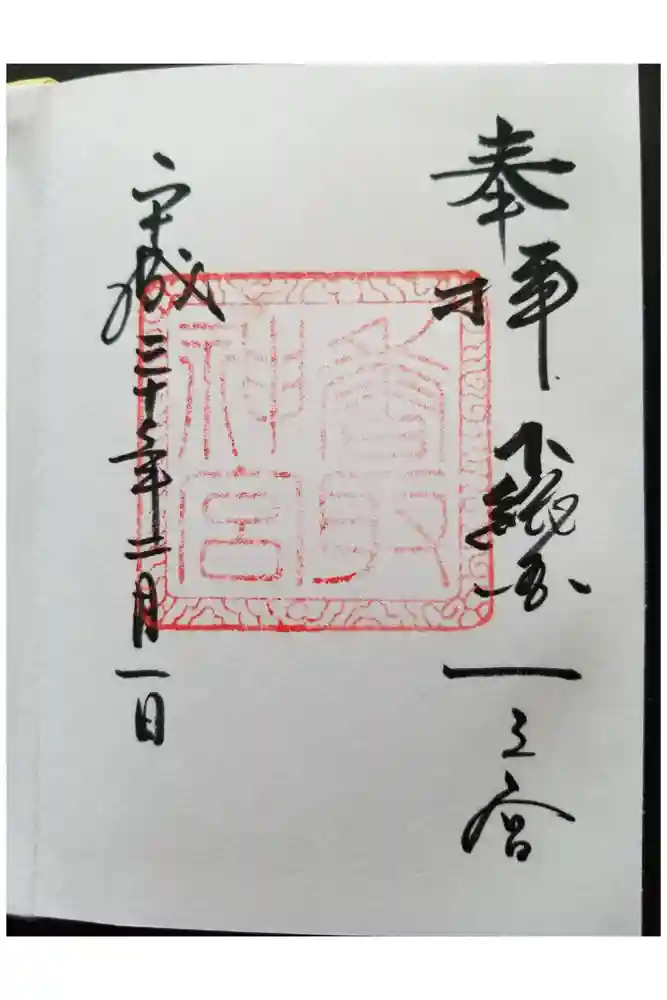 奉拝 下総国一之宮
香取神宮
平成三十年二月一日